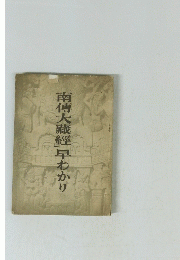 南傳大藏經早わかり